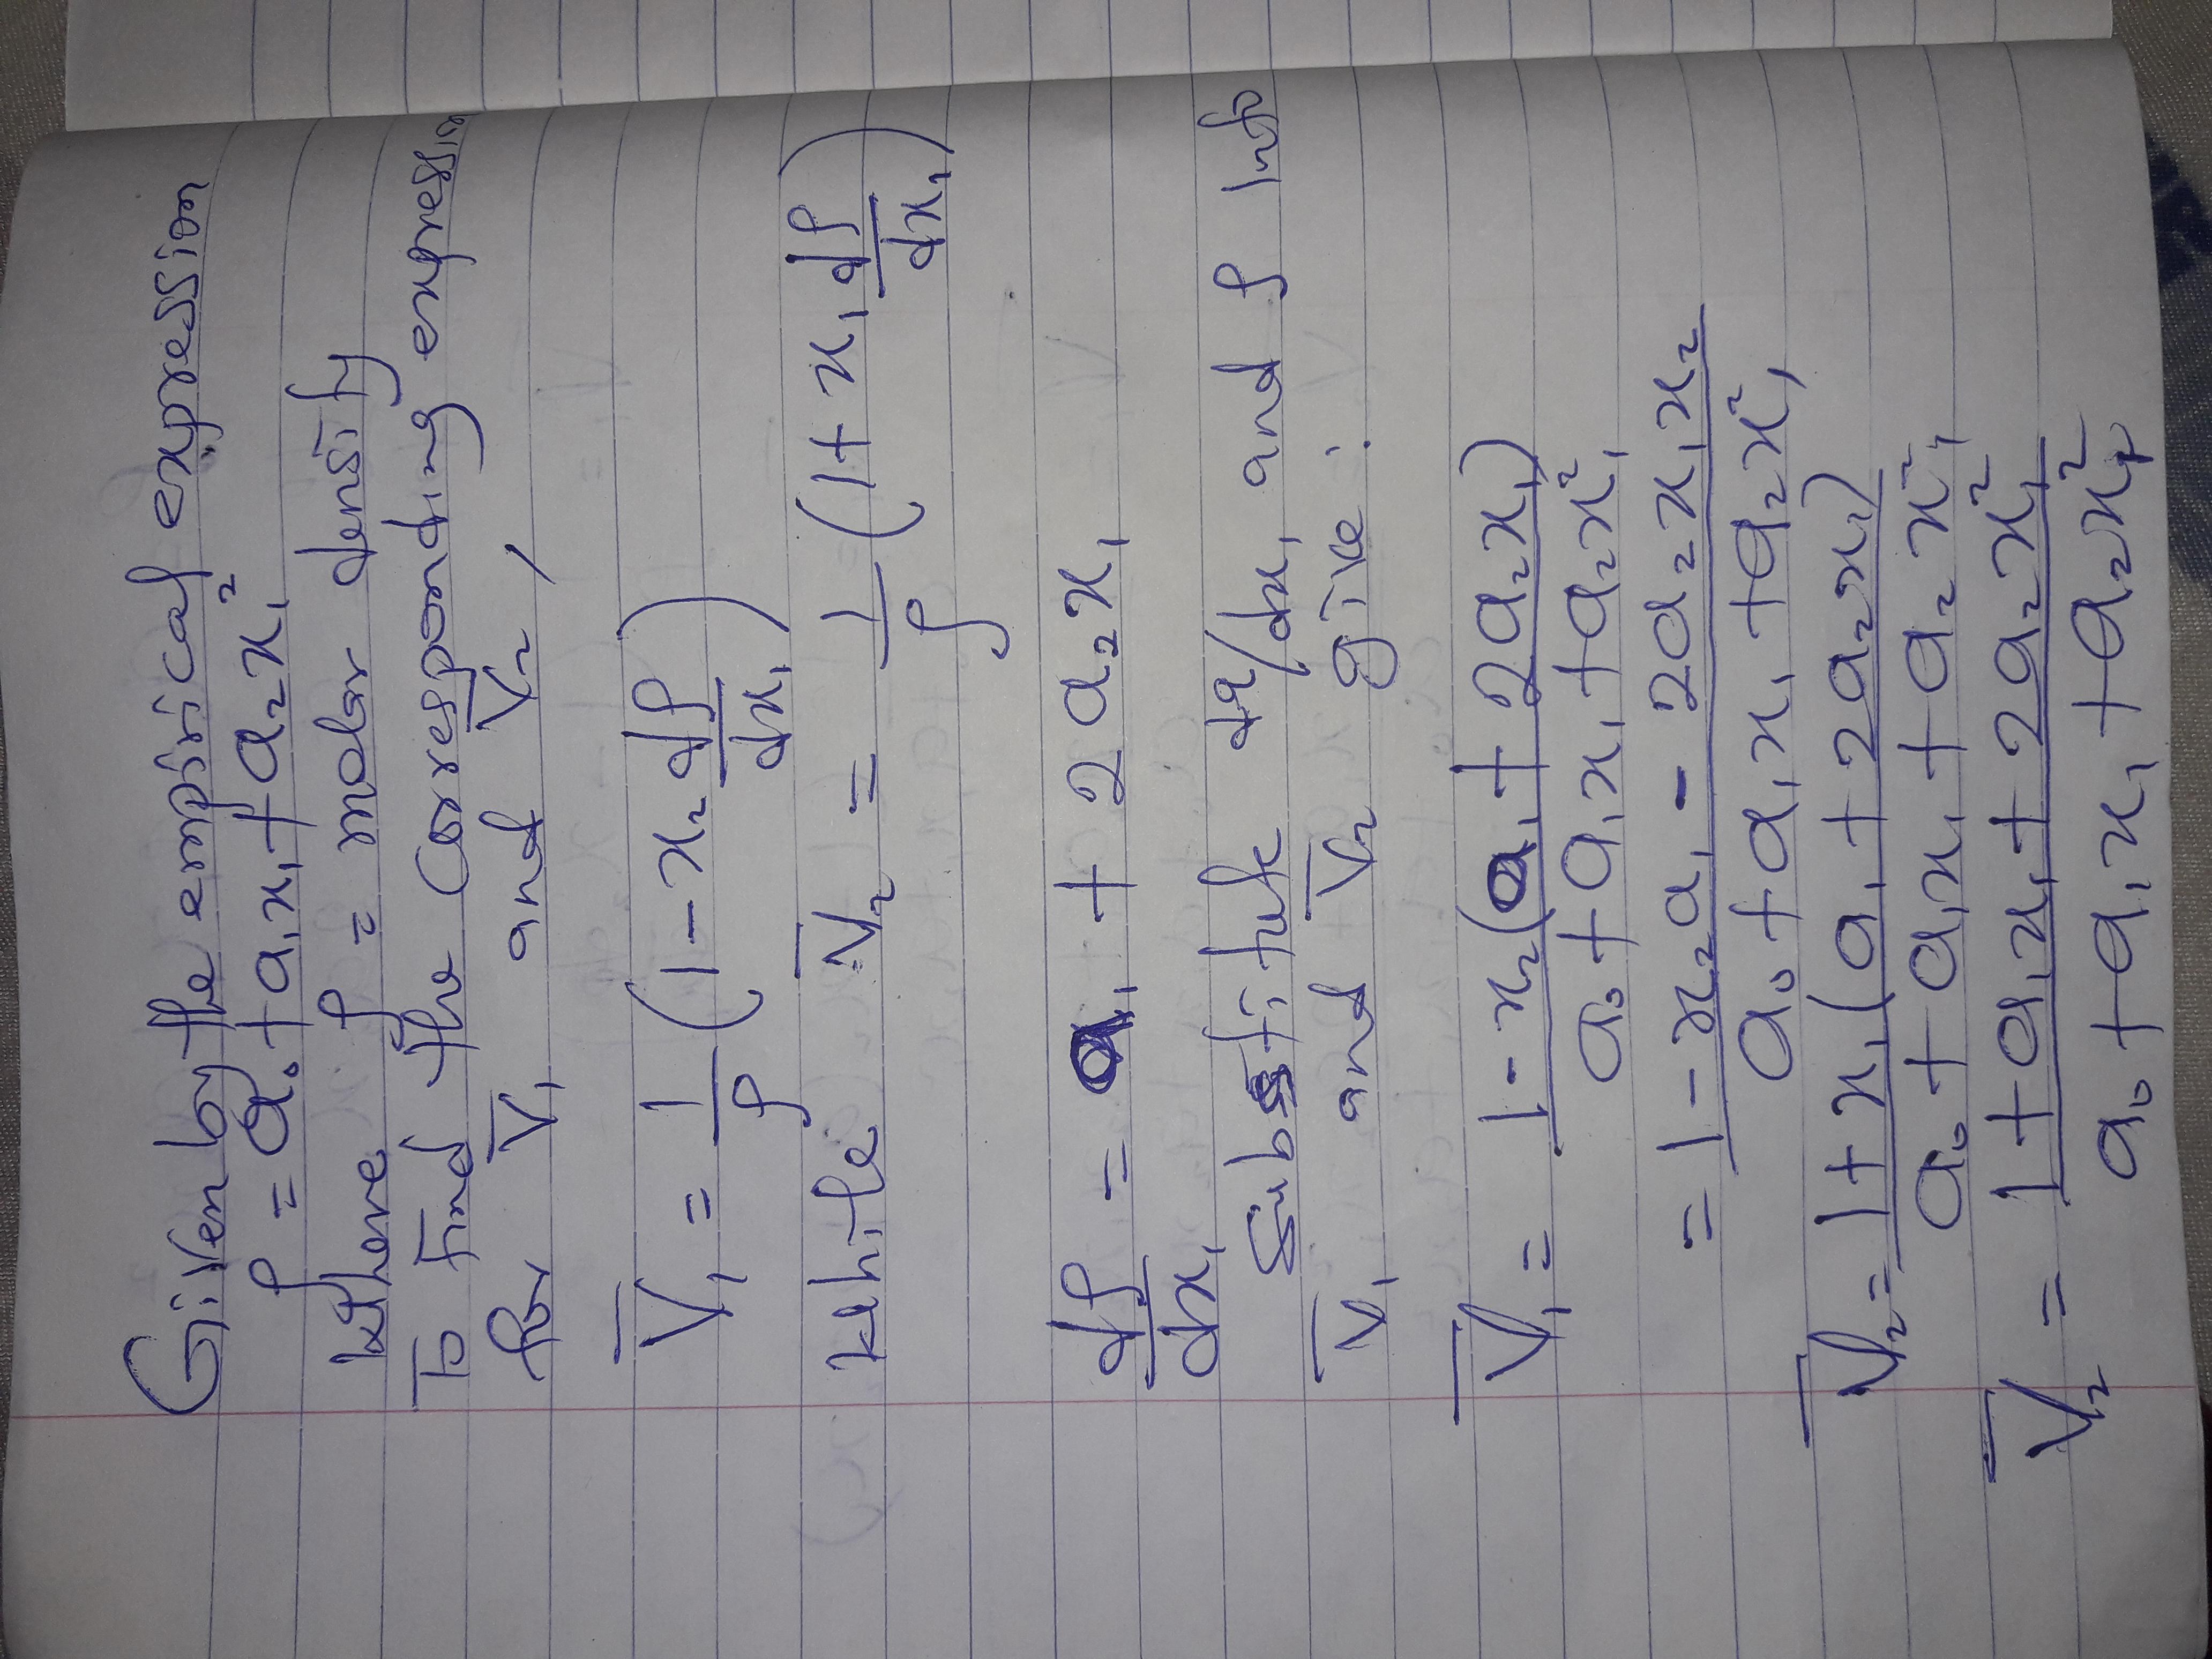 Given by the empirical expression
ρ = a₀ + a₁x₁ + a₂x₁²
where ρ = molar density
To find the corresponding expression
for V̅₁ and V̅₂,
V̅₁ = 1/ρ (1 - x₂ dρ/dx₁)
while V̅₂ = 1/ρ (1 + x₁ dρ/dx₁)
dρ/dx₁ = a₁ + 2a₂x₁
Substitute dρ/dx₁ and ρ into
V̅₁ and V̅₂ give:
V̅₁ = 1 - x₂(a₁ + 2a₂x₁) / a₀ + a₁x₁ + a₂x₁²
= 1 - x₂a₁ - 2a₂x₁x₂ / a₀ + a₁x₁ + a₂x₁²
V̅₂ = 1 + x₁(a₁ + 2a₂x₁) / a₀ + a₁x₁ + a₂x₁²
V̅₂ = 1 + a₁x₁ + 2a₂x₁² / a₀ + a₁x₁ + a₂x₁²